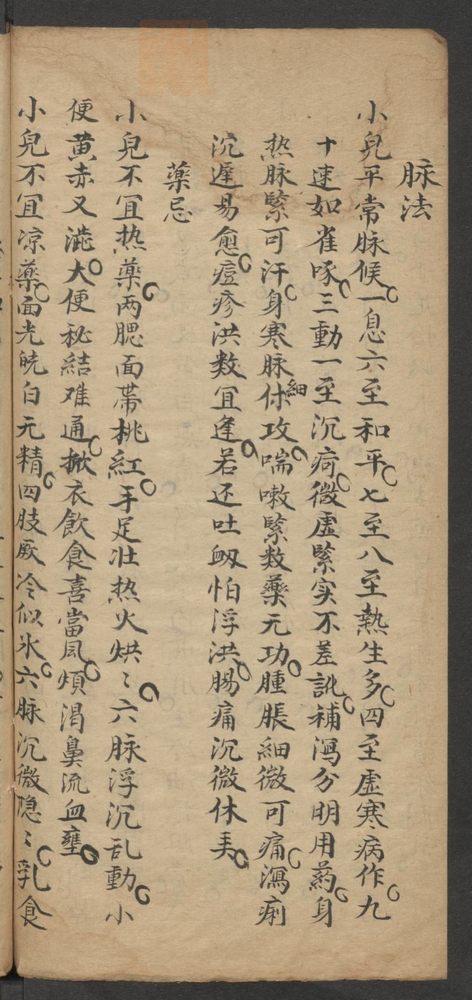 脉法
小兒平常脉候一息六至和平七至八至熱生多四至虛寒病作九
十速如雀啄三動一至沉疴微虛緊实不差訛補瀉分明用药身
热脉緊可汗身寒脉休細攻喘嗽緊数藥元功腫脹細微可痛瀉痢
沉遲易愈痘疹洪数冝逢若还吐衂怕浮洪腸痛沉微休美
藥忌
小兒不冝热藥两腮面帯桃紅手足壮热火烘〻六脉浮沉乱動小
便黄赤又澁大便秘結难通掀衣飲食喜當風煩渴鼻流血壅
小兒不冝凉藥面光㿠白元精四肢厥冷似氷六脉沉微隐〻乳食